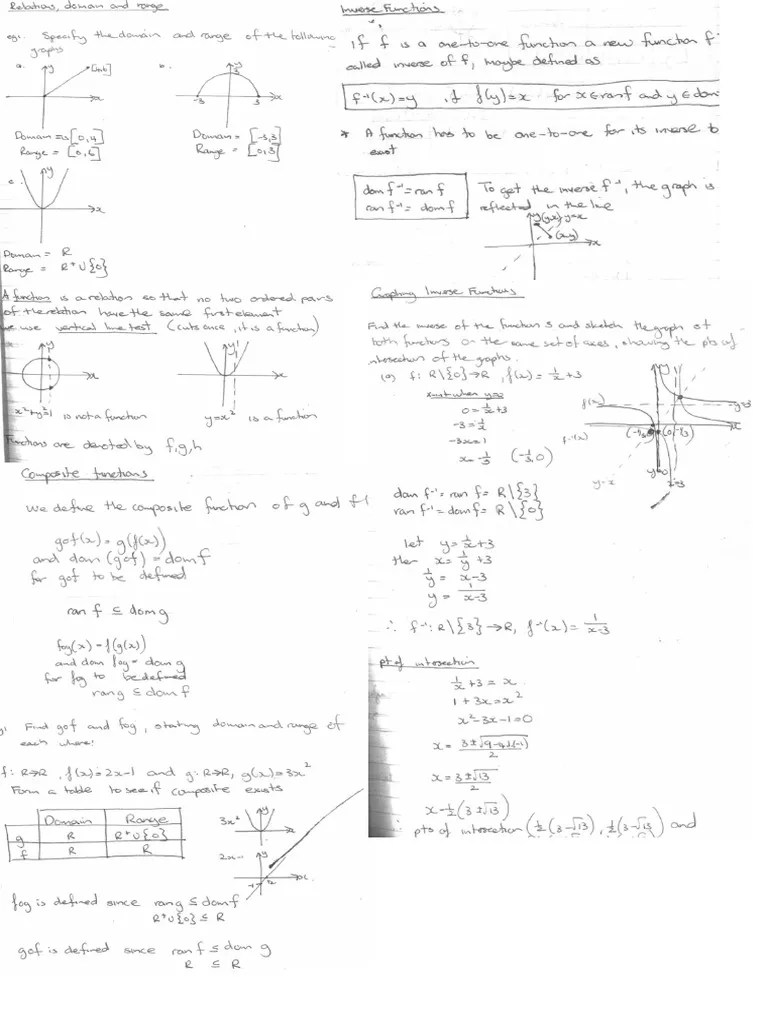 Relations, domain and range
eg1. Specify the domain and range of the following
graphs
a.
y
x
b.
y
3
-3
3
x
Domain = [0,4]
Range = [0,6]
Domain = [-3,3]
Range = [0,3]
c.
y
x
Domain = R
Range = R⁺∪{0}
A function is a relation so that no two ordered pairs
of the relation have the same first element
we use vertical line test (cuts once, it is a function)
y
x
y
x
x²+y²=1 is not a function
y=x² is a function
Functions are denoted by f,g,h
Composite functions
We define the composite function of g and f
gof(x) = g(f(x))
and dom (gof) = dom f
for gof to be defined
ran f ⊆ dom g
fog(x) = f(g(x))
and dom fog = dom g
for fog to be defined
ran g ⊆ dom f
Find gof and fog, stating domain and range of
each where:
f: R→R, f(x)=2x-1 and g: R→R, g(x)=3x²
Form a table to see if composite exists
Domain Range
g R R⁺∪{0}
f R R
3x²
y
x
y
x
fog is defined since ran g ⊆ dom f
R⁺∪{0} ⊆ R
gof is defined since ran f ⊆ dom g
R ⊆ R
Inverse Functions
If f is a one-to-one function a new function f
called inverse of f, maybe defined as
f⁻¹(x)=y if f(y)=x for x∈ran f and y∈dom
* A function has to be one-to-one for its inverse to
exist
dom f⁻¹ = ran f
ran f⁻¹ = dom f
To get the inverse f⁻¹, the graph is
reflected in the line
y (y,x) y=x
(x,y)
x
Graphing Inverse Functions
Find the inverse of the functions and sketch the graph of
both functions on the same set of axes, showing the pts of
intersection of the graphs.
(a) f: R\{0}→R, f(x) = 1/x + 3
x int when y=0
0 = 1/x + 3
-3 = 1/x
-3x = 1
x = -1/3 (-1/3, 0)
f(x)
y=3
x
f⁻¹(x)
(-1/3,0)
(0,-1/3)
y=x
x=3
dom f⁻¹ = ran f = R\{3}
ran f⁻¹ = dom f = R\{0}
let y = 1/x + 3
then x = 1/y + 3
1/y = x-3
y = 1/(x-3)
∴ f⁻¹: R\{3}→R, f⁻¹(x) = 1/(x-3)
pt of intersection
1/x + 3 = x
1 + 3x = x²
x² - 3x - 1 = 0
x = 3±√13
2
x = 1/2(3±√13)
∴ pts of intersection (1/2(3-√13), 1/2(3-√13)) and